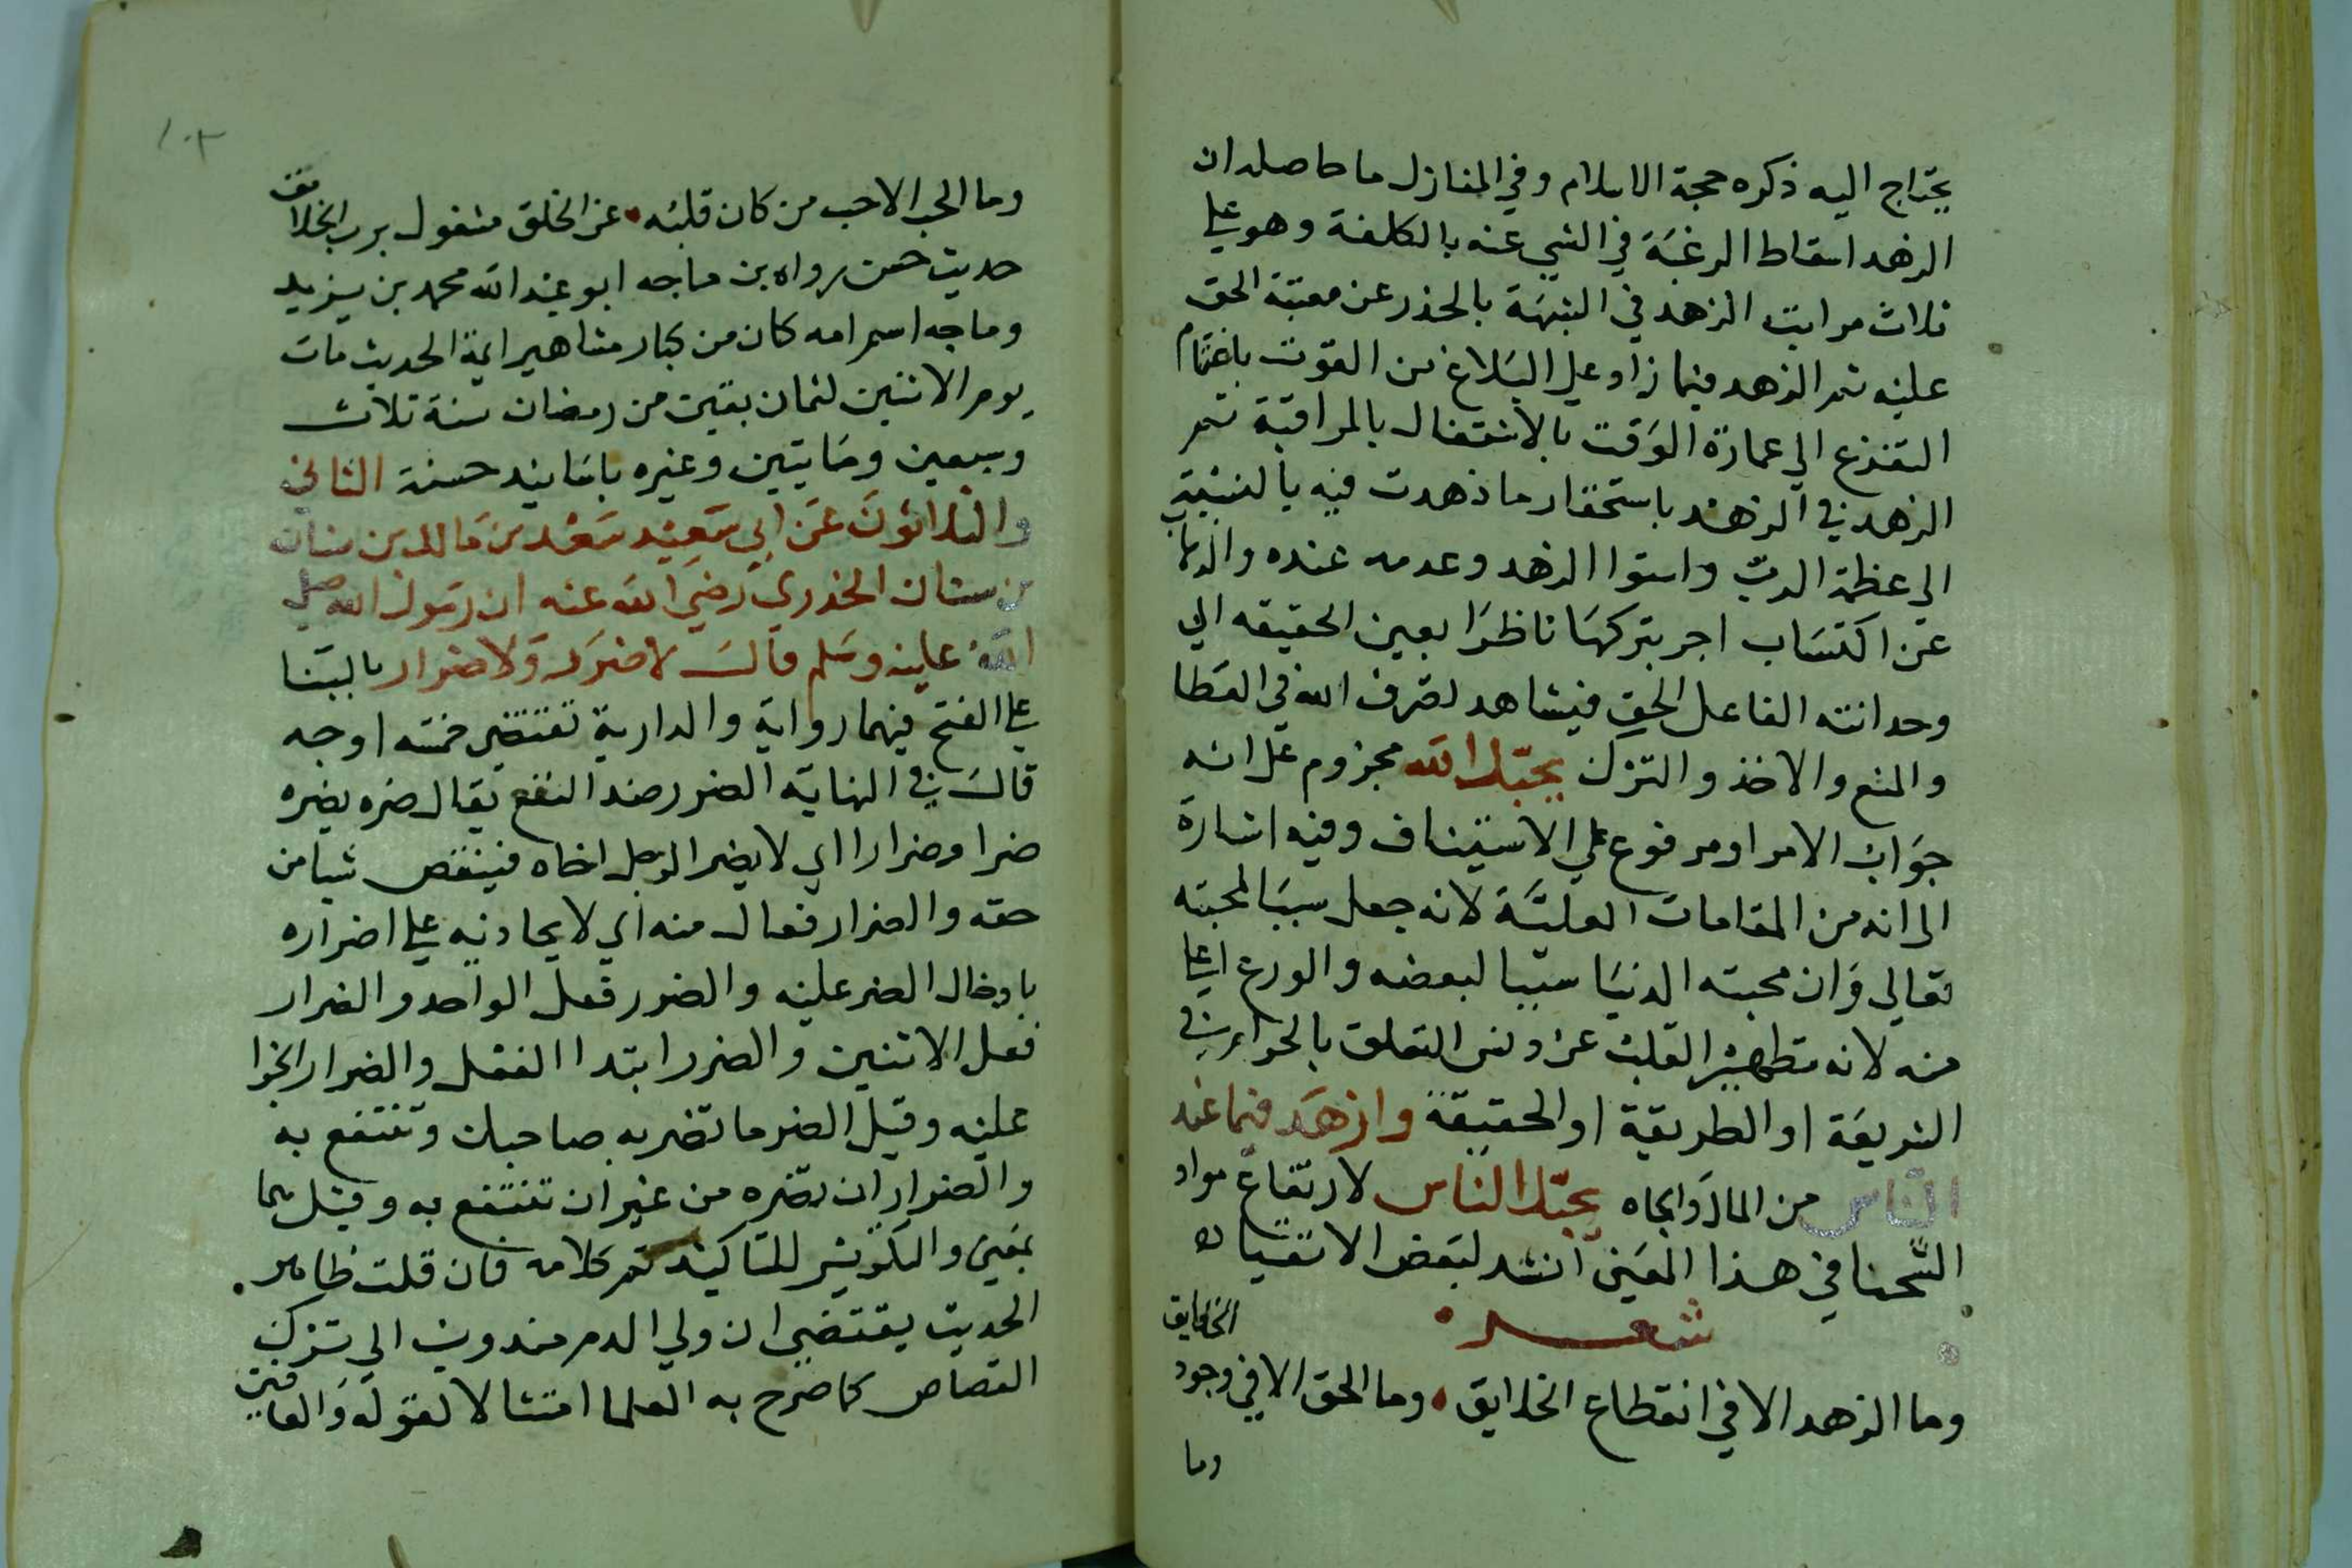 يحتاج اليه ذكره حجة الاسلام وفي المنازل ما حاصله ان
الزهد اسقاط الرغبة في الشي عنه بالكلفة وهو علي
ثلاث مراتب الزهد في الشبهة بالحذر عن معتبة الحق
عليه ثم الزهد فيما زاد علي البلاغ من القوت باغتنام
التفرغ الي عمارة الوقت بالاشتغال بالمراقبة ثم
الزهد في الزهد باستحقار ما زهدت فيه بالنسبة
الي عظمة الرب واستوا الزهد وعدمه عنده والذهاب
عن اكتساب اجر بتركها ناظرا بعين الحقيقه الي
وحدانته الفاعل الحق فيشاهد تصرف الله في العطا
والمنع والاخذ والترك يحبك الله مجزوم علي انه
جواب الامر او مرفوع علي الاستيناف وفيه اشارة
الي انه من المقامات العلية لانه جعل سببا لمحبته
تعالي وان محبته الدنيا سببا لبعضه والورع اعلي
منه لانه تطهير القلب عن دنس التعلق بالحرام في
الشريعة او الطريقة او الحقيقة وازهد فيما عند
الناس من المال والجاه يحبك الناس لارتفاع مواد
الشحنا في هذا المعني انشد لبعض الاتقيا
شعر
الخلايق
وما الزهد الا في انقطاع الخلايق وما الحق الا في وجود
وما
١٠٣
وما الحب الا حب من كان قلبه عن الخلق مشغول برب الخلائق
حديث حسن رواه بن ماجه ابو عبد الله محمد بن يزيد
وماجه اسم امه كان من كبار مشاهير ايمة الحديث مات
يوم الاثنين لثمان بقين من رمضان سنة ثلاث
وسبعين ومايتين وغيره باسانيد حسنة الثاني
والثلاثون عن ابي سعيد سعد بن مالك بن سنان
بن سنان الخدري رضي الله عنه ان رسول الله صلي
الله عليه وسلم قال لا ضرر ولا ضرار بالبنا
علي الفتح فيهما رواية والدارية تقتضي خمسه اوجه
قال في النهاية الضرر ضد النفع يقال ضره يضره
ضرا وضرارا اي لا يضر الرجل اخاه فينقص شيا من
حقه والضرار فعال منه اي لا يجاذيه علي اضراره
بادخال الضر عليه والضرر فعل الواحد والضرار
فعل الاثنين والضرر ابتدا الفعل والضرار الجزا
عليه وقيل الضر ما تضر به صاحبك وتنتفع به
والضرار ان تضره من غير ان تنتفع به وقيل هما
بمعني والتكرير للتاكيد تم كلامه فان قلت ظاهر
الحديث يقتضي ان ولي الدم مندوب الي ترك
القصاص كما صرح به العلما امتثالا لقوله والعافين